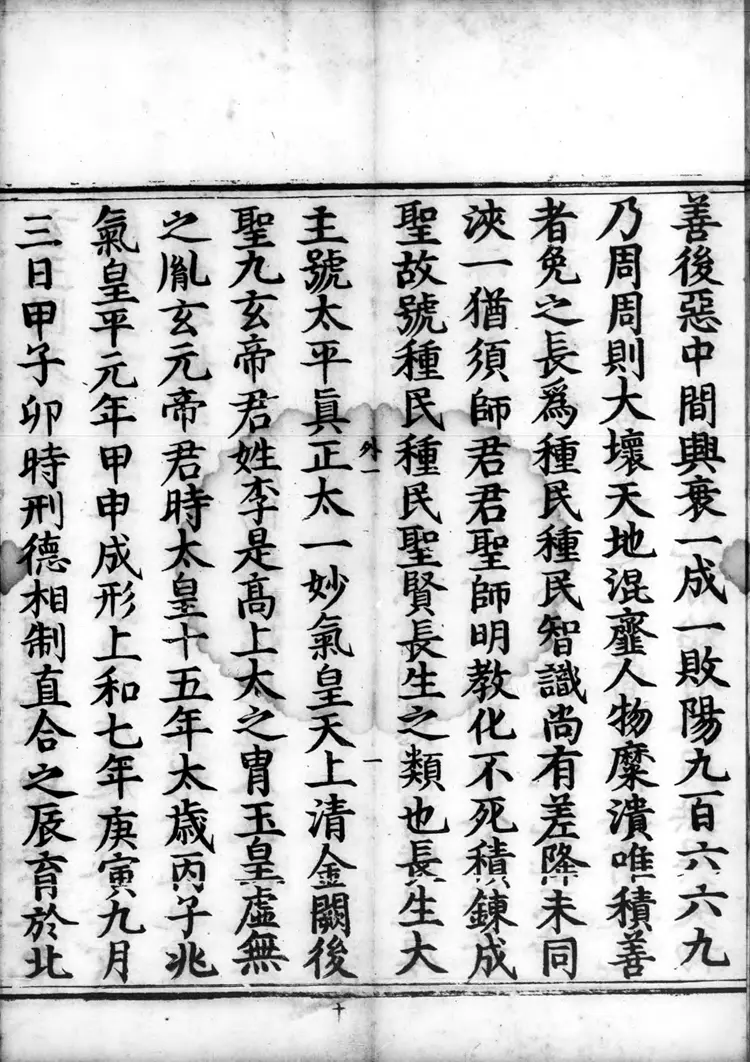 善後惡中間興衰一成一敗陽九百六六九
乃周周則大壞天地混齏人物糜潰唯積善
者免之長爲種民種民智識尚有差降未同
浹一猶須師君君聖師明教化不死積鍊成
聖故號種民種民聖賢長生之類也長生大
外一
一
主號太平眞正太一妙氣皇天上清金闕後
聖九玄帝君姓李是高上太之冑玉皇虛無
之胤玄元帝君時太皇十五年太歲丙子兆
氣皇平元年甲申成形上和七年庚寅九月
三日甲子卯時刑德相制直合之辰育於北